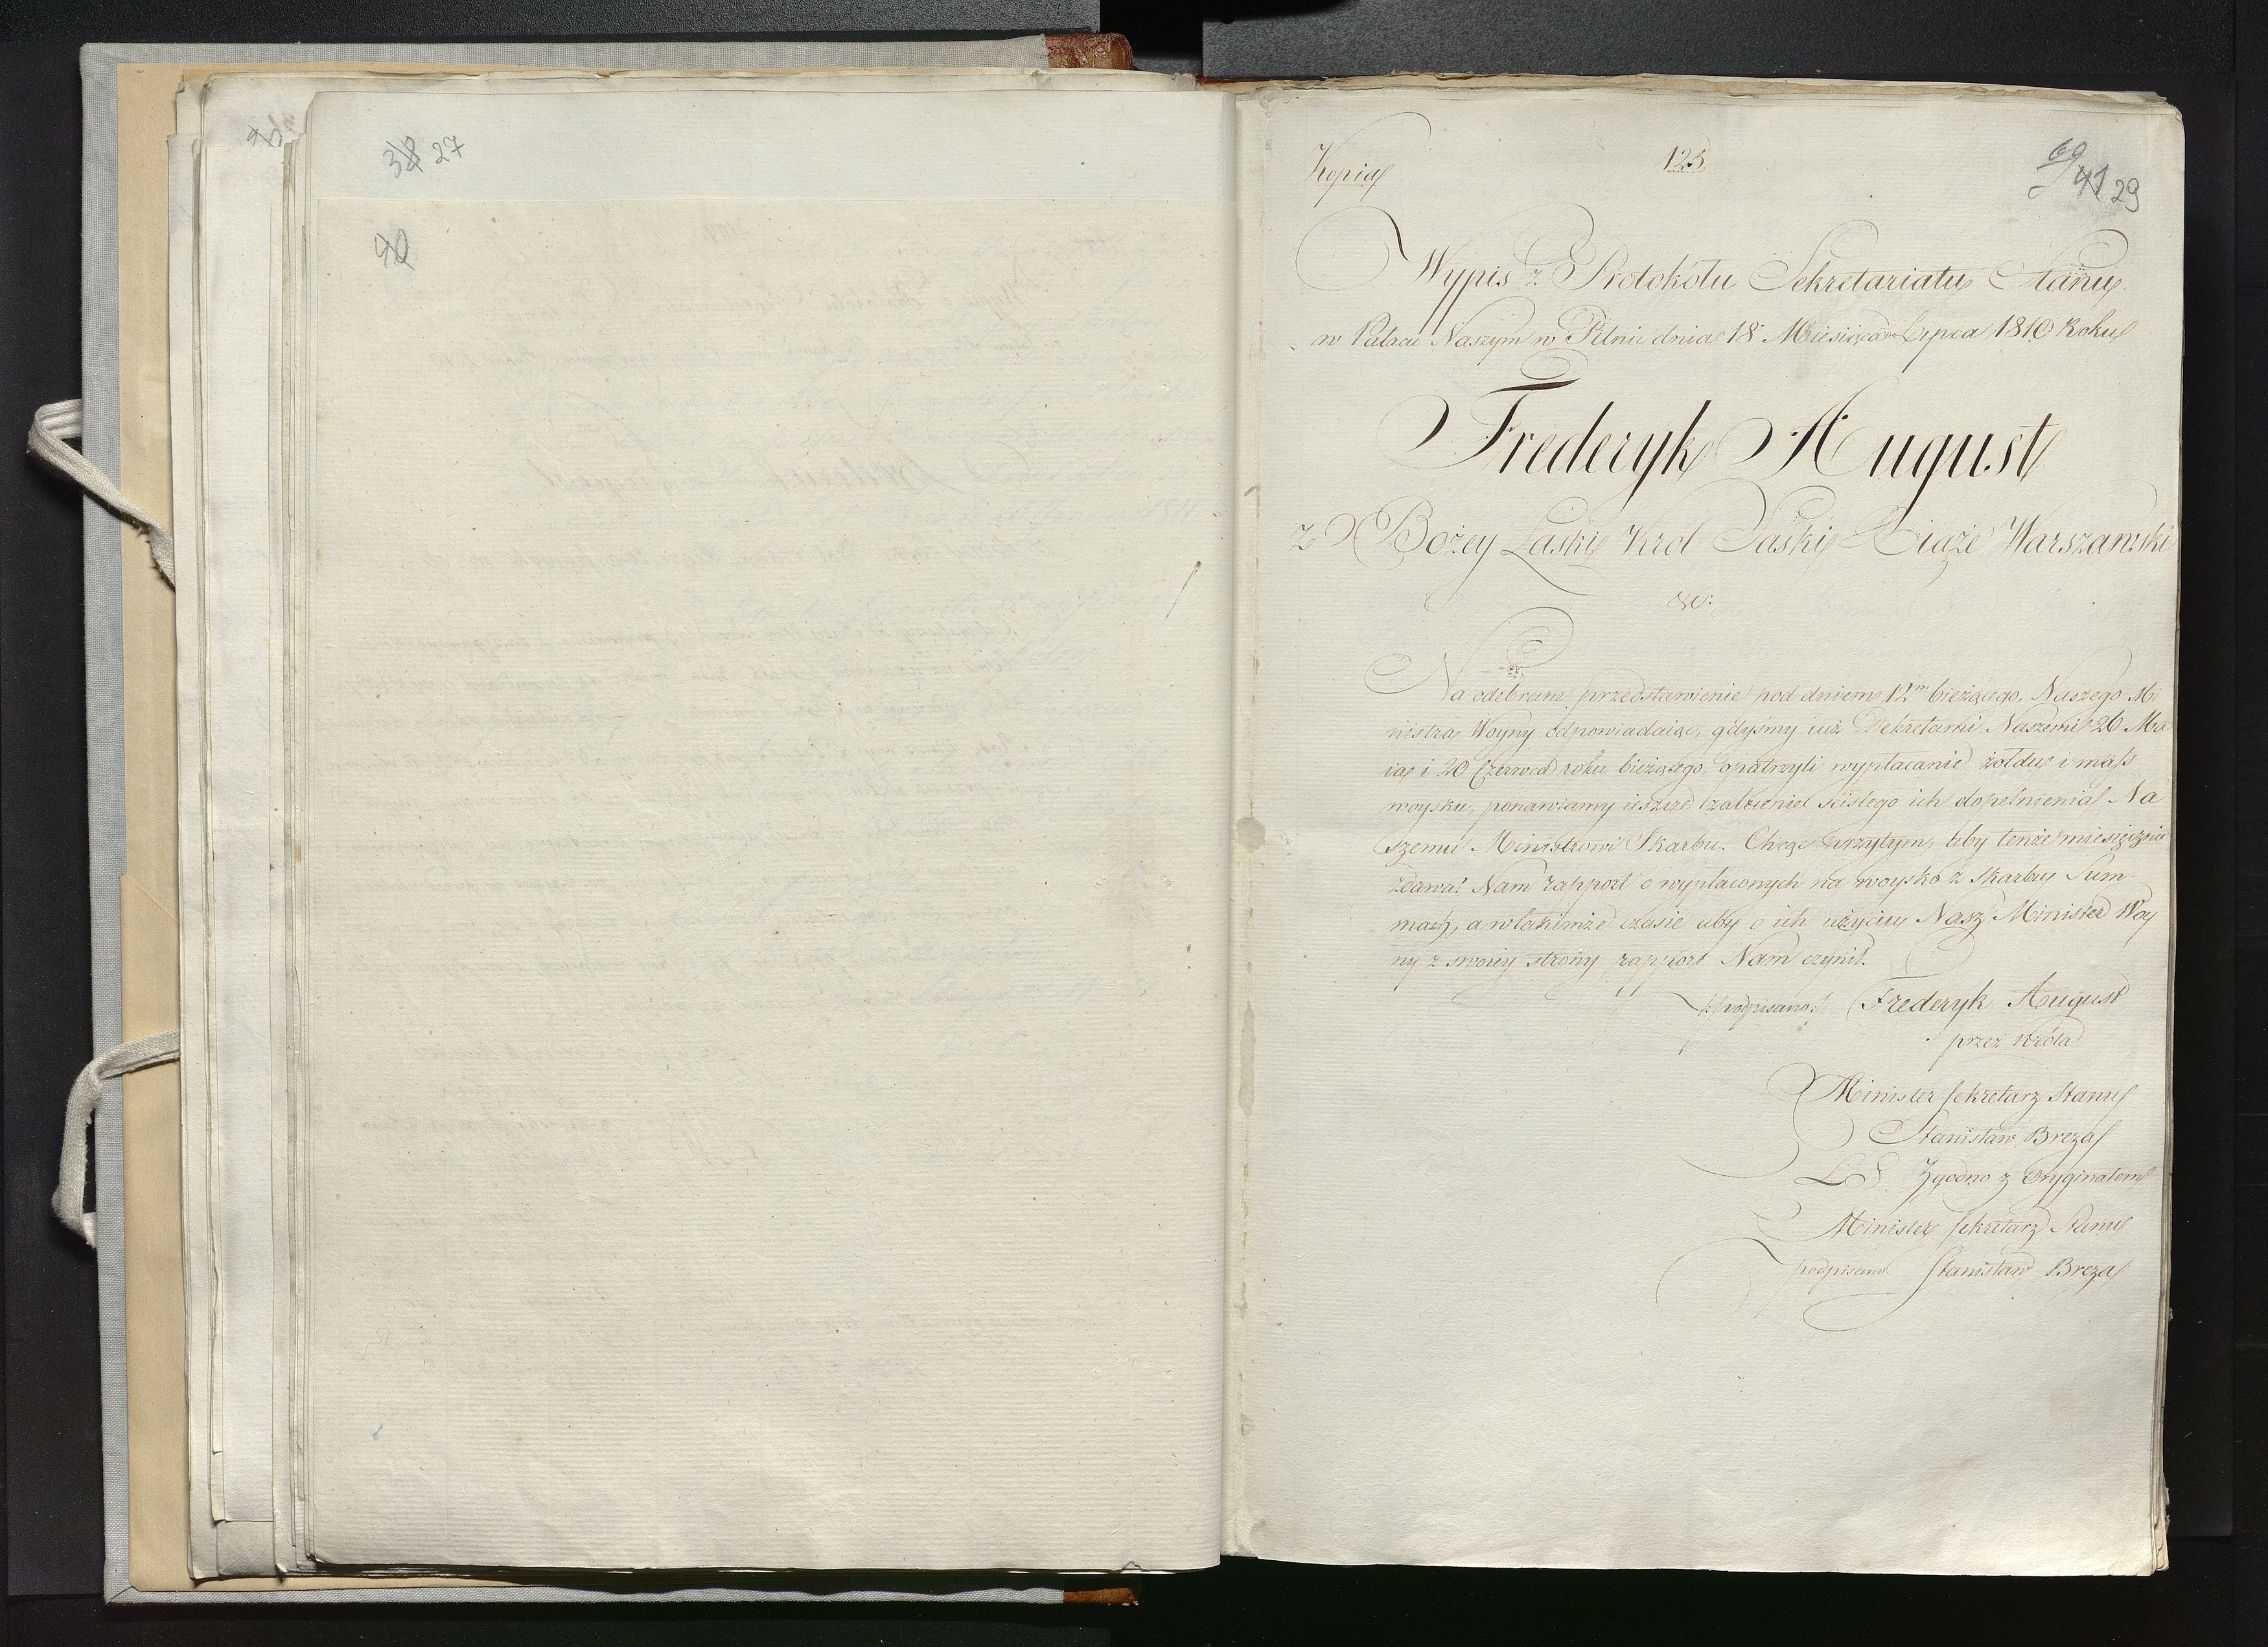 38 27
90
Kopia
125
69
41 29
Wypis z Protokołu Sekretariatu Stanu
w Pałacu Naszym w Pilnic dnia 18 Miesiąca Lipca 1810 Roku
Frederyk August
z Bożey Łaski Król Saski Xiąże Warszawski
&c:
Na odebrane przedstawienie pod dniem 12m bieżącego, Naszego Mi
nistra Woyny odpowiadaiąc, gdyśmy iuż Dekretami Naszemi 26 Ma
ia i 20 Czerwca roku bieżącego, opatrzyli wypłacanie żołdu i mass
woysku, ponawiamy ieszcze zalecenie ścisłego ich dopełnienia Na
szemu Ministrowi Skarbu. Chcąc przytym, aby tenże miesięcznie
zdawał Nam rapport o wypłaconych na woysko z Skarbu Sum-
mach, a w takimże czasie aby o ich użyciu Nasz Minister Woy
ny z swoiey strony rapport Nam czynił.
/:podpisano:/ Frederyk August
przez Króla
Minister Sekretarz Stanu
Stanisław Breza
L S. Zgodno z Oryginałem
Minister Sekretarz Stanu
podpisano Stanisław Breza